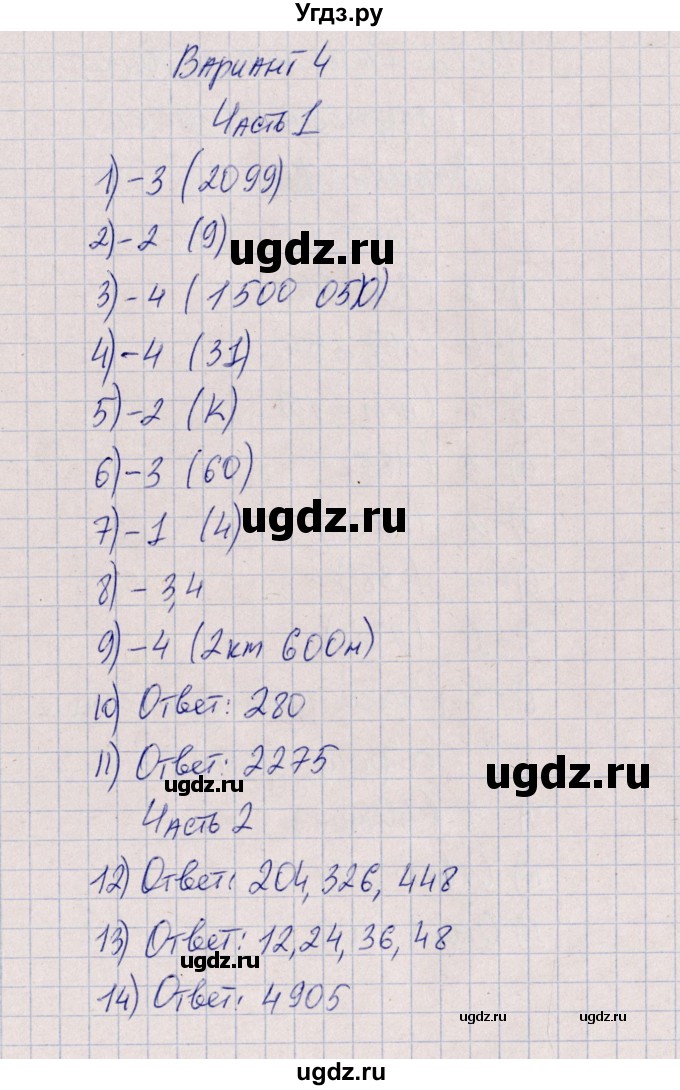 Угдз.ру
Вариант 4
Часть 1
1) - 3 (2099)
2) - 2 (9)
ugdz.ru
3) - 4 (1500 050)
4) - 4 (31)
5) - 2 (К)
6) - 3 (60)
ugdz.ru
7) - 1 (4)
8) - 3,4
9) - 4 (2км 600м)
10) Ответ: 280
11) Ответ: 2275
ugdz.ru
ugdz.ru
Часть 2
12) Ответ: 204, 326, 448
13) Ответ: 12, 24, 36, 48
ugdz.ru
14) Ответ: 4905
ugdz.ru
ugdz.ru
ugdz.ru